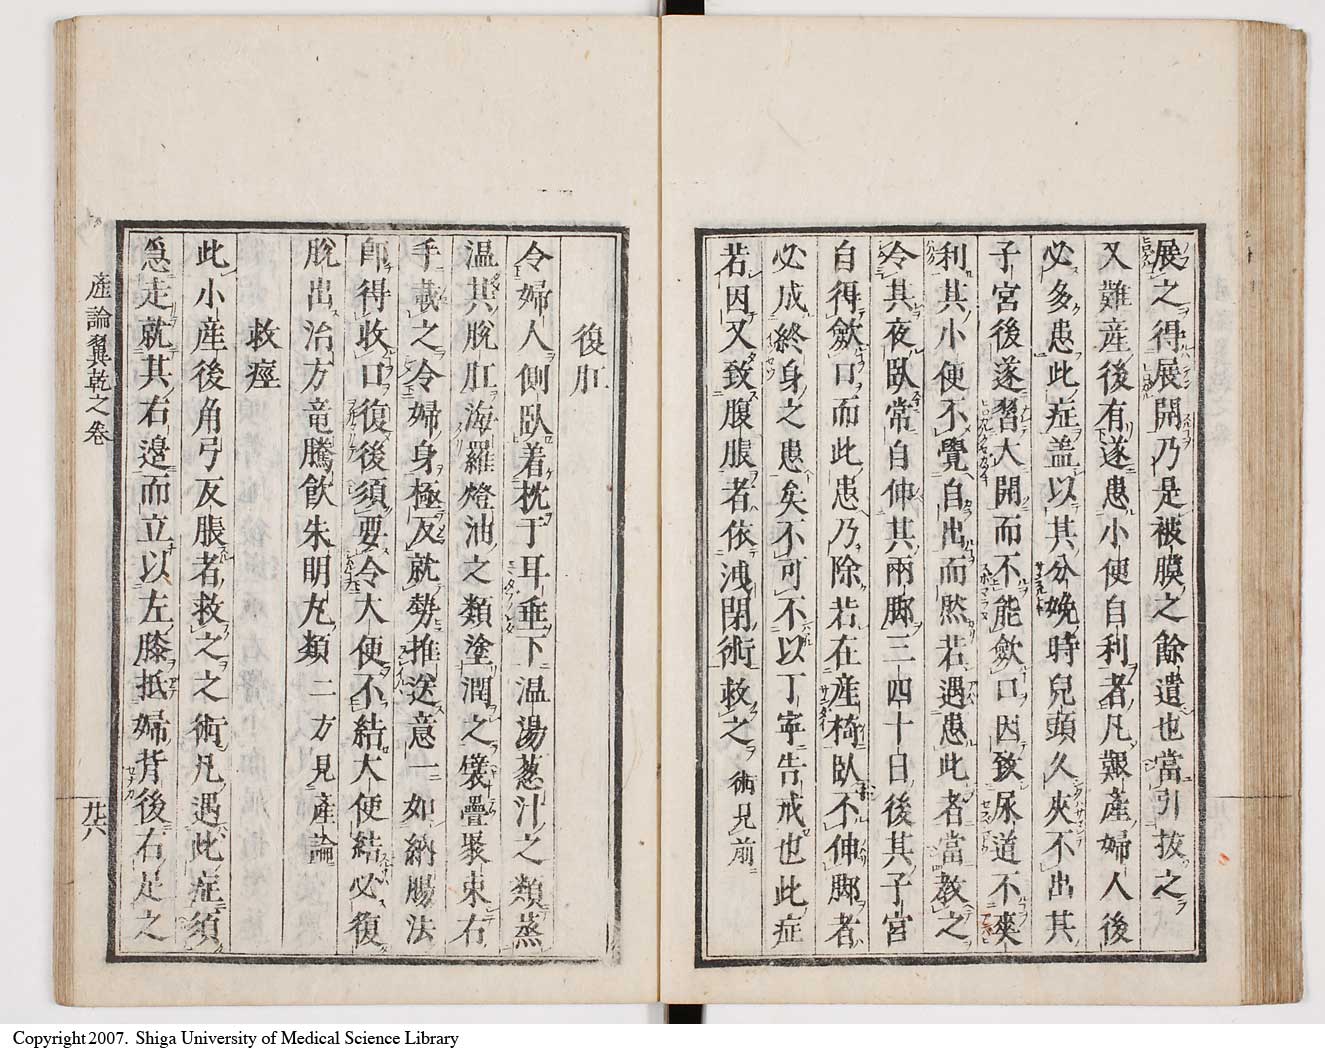 展之得展開乃是被膜之餘遺也當引拔之
又難産後有遂患小便自利者凡艱産婦人後
必多患此症盖以其分娩時兒頭久夾不出其
子宮後遂習大開而不能歛口因致尿道不夾
利其小便不覺自出而然若遇患此者當教之
令其夜臥常自伸其兩脚三四十日後其子宮
自得歛口而此患乃除若在産椅臥不伸脚者
必成終身之患矣不可不以丁寧告戒也此症
若因又致腹脹者依洩閉術救之術見前
復肛
令婦人側臥着枕于耳垂下温湯葱汁之類蒸
温其脫肛海羅燈油之類塗潤之襞疊褧束右
手載之令婦身極反就勢推送意一如納腸法
即得收口復後須要令大便不結大便結必復
脫出治方竜騰飲朱明丸類二方見産論
救痙
此小産後角弓反脹者救之之術凡遇此症須
急走就其右邉而立以左膝抵婦背後右足之
産論翼乾之卷
廿六
Copyright 2007. Shiga University of Medical Science Library